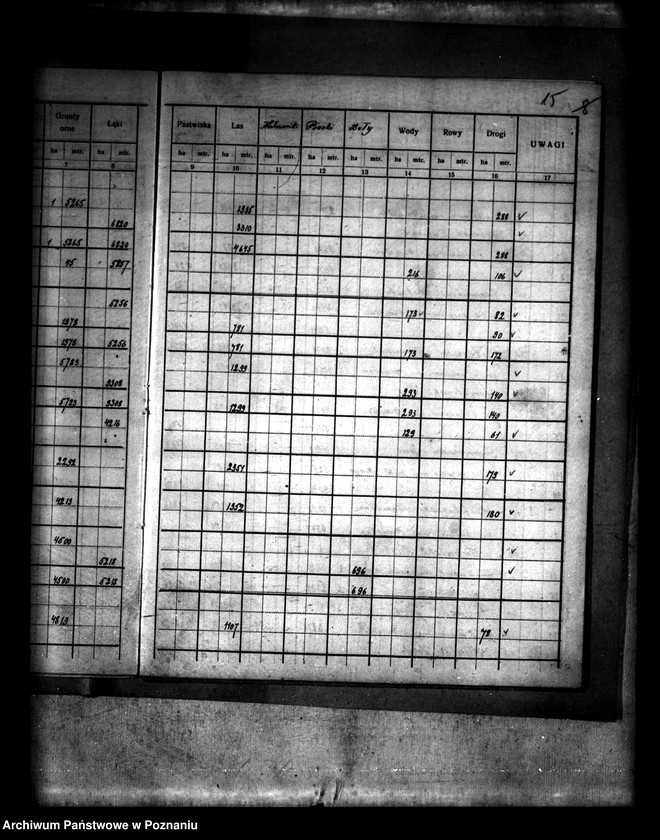 15 8
Grunty orne Łąki Pastwiska Las Piaski Doły Wody Rowy Drogi UWAGI
ha mtr. ha mtr. ha mtr. ha mtr. ha mtr. ha mtr. ha mtr. ha mtr. ha mtr. ha mtr.
7 8 9 10 11 12 13 14 15 16 17
1 5265 1335 288 v
6820 3310 v
1 5265 6820 4645 288
45 5257 216 106 v
5256
1978 173 v 82 v
781 90 v
1978 5256 781 173 172
5723 1299 v
9308 293 140 v
5723 9308 1299 293 140
4216 129 61 v
2292 2351 179 v
4213 1352 180 v
4500 v
5218 696 v
4500 5218 696
4819 1107 78 v
Archiwum Państwowe w Poznaniu